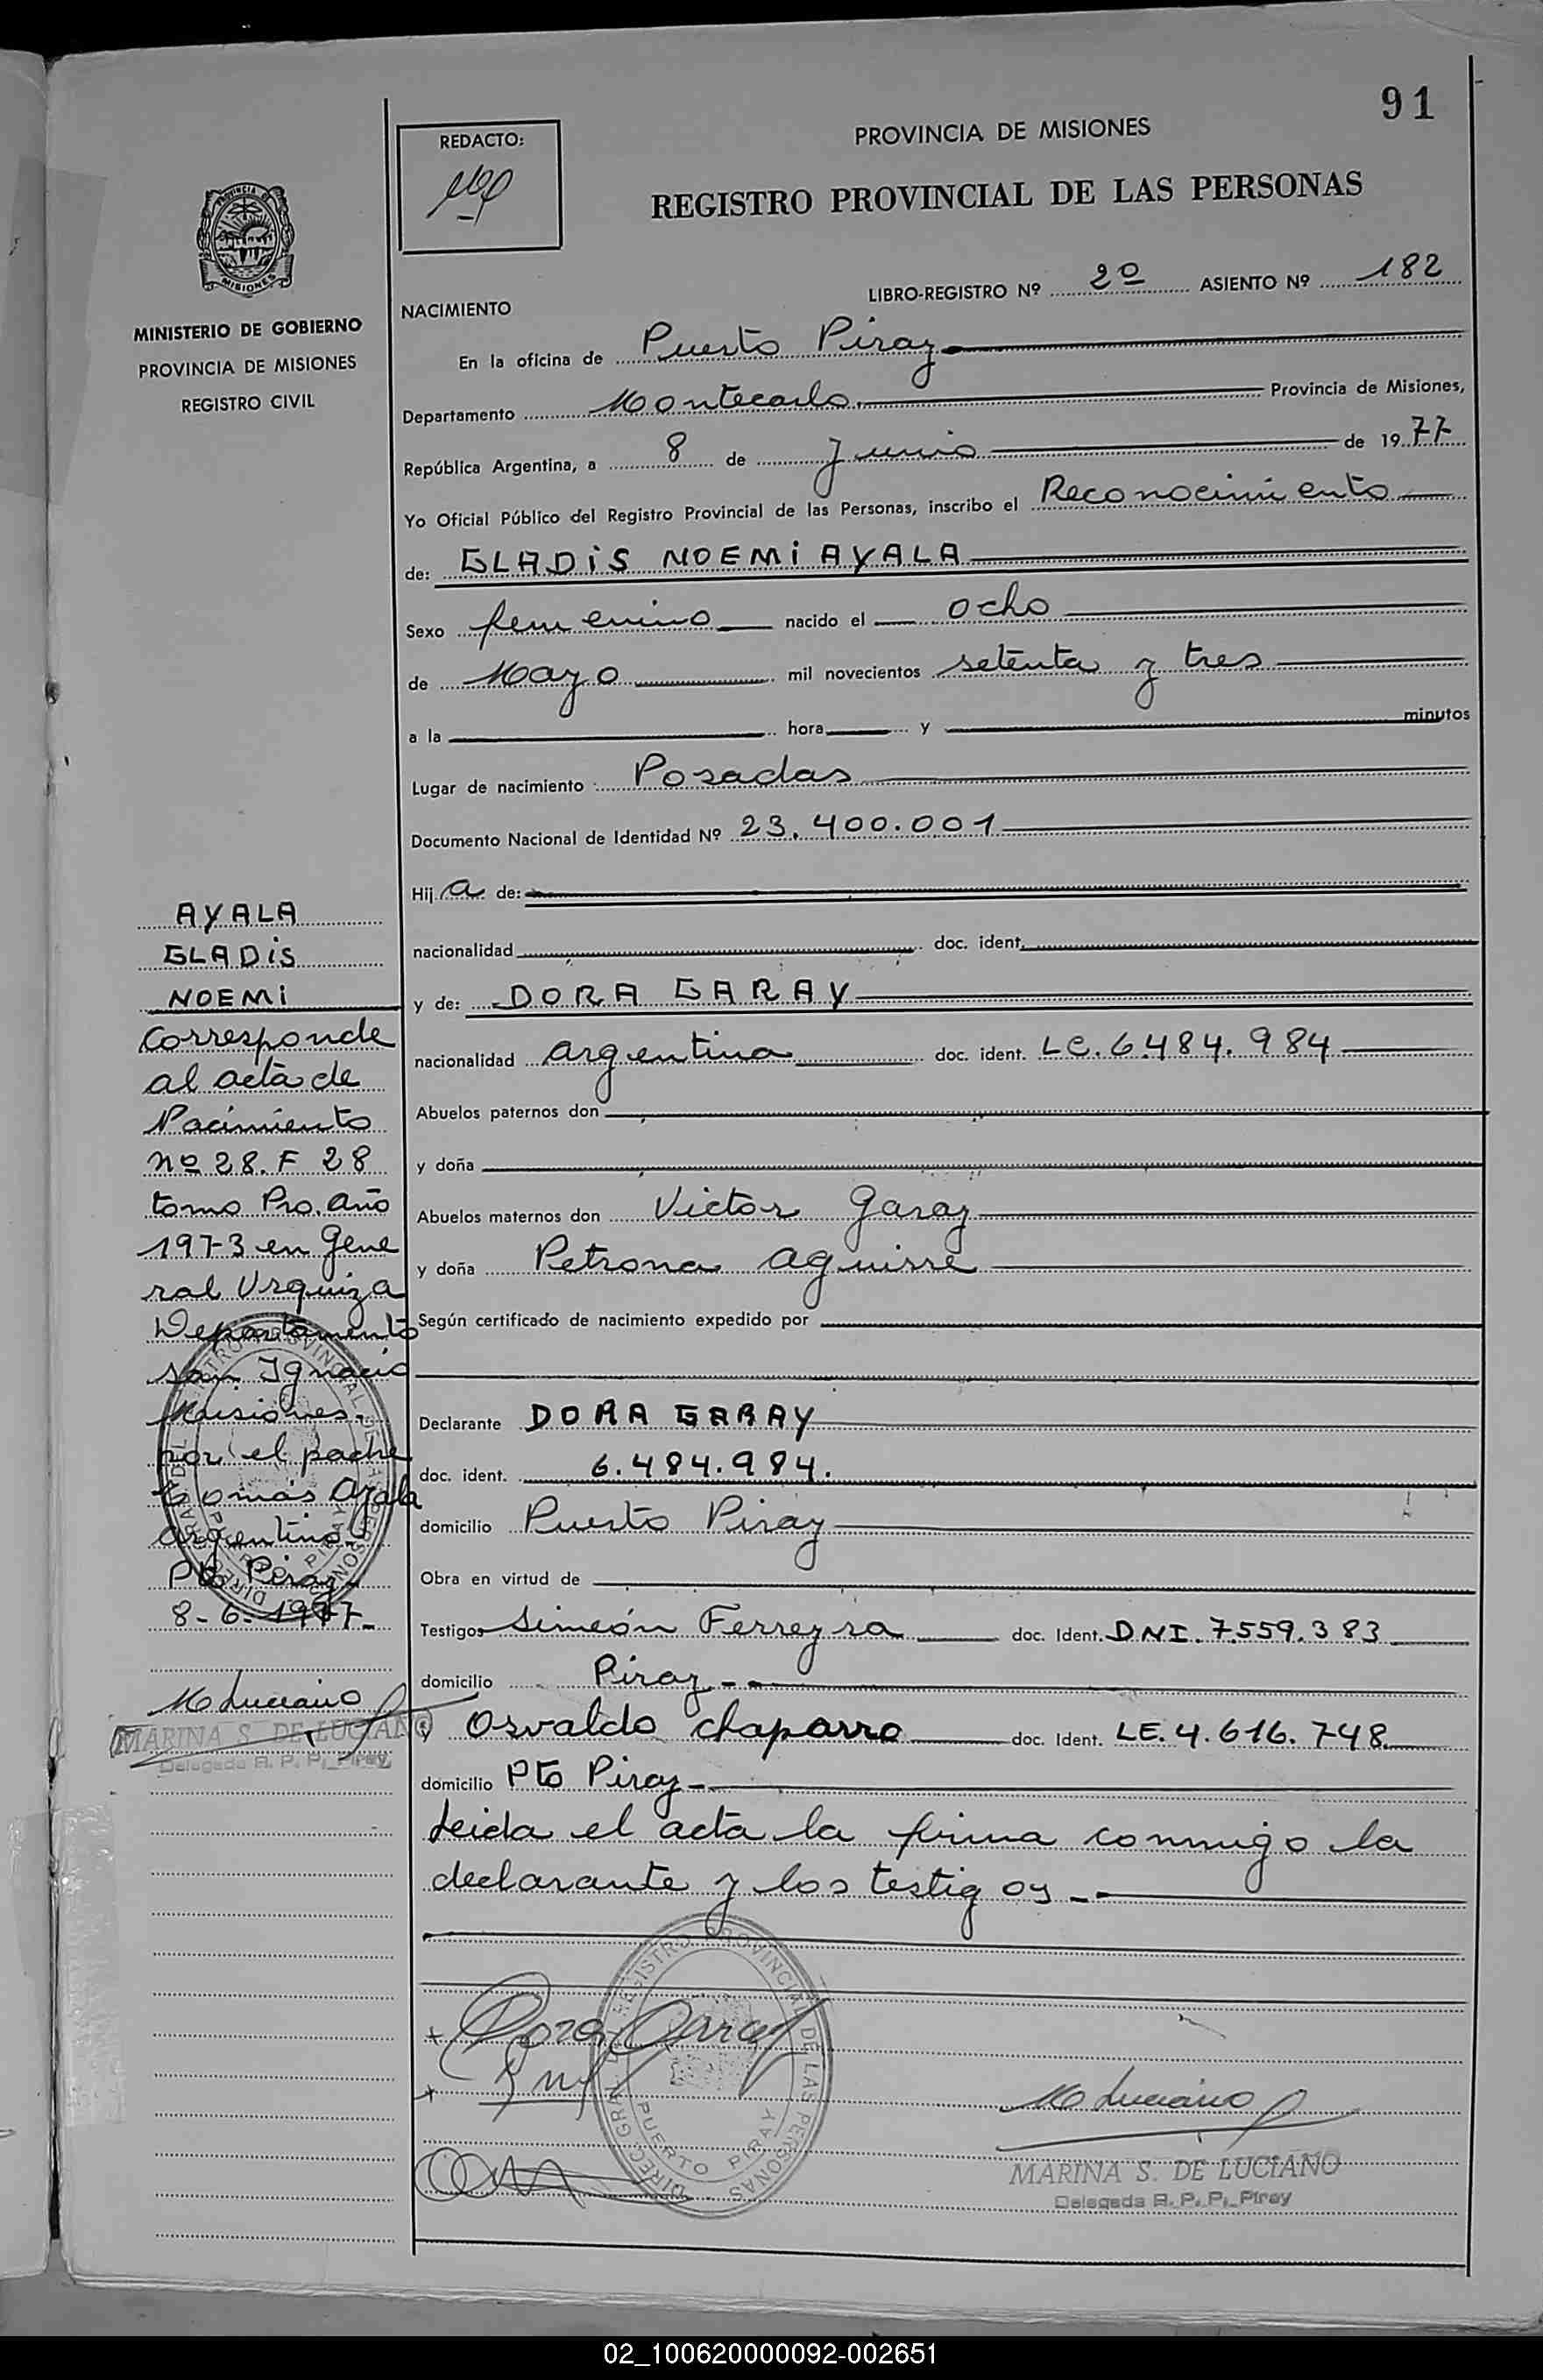 91
REDACTO:
PROVINCIA DE MISIONES
REGISTRO PROVINCIAL DE LAS PERSONAS
MISIONES
MINISTERIO DE GOBIERNO
PROVINCIA DE MISIONES
REGISTRO CIVIL
LIBRO-REGISTRO Nº 2º ASIENTO Nº 182
NACIMIENTO
En la oficina de Puerto Piray
Departamento Montecarlo. Provincia de Misiones,
República Argentina, a 8 de Junio de 1977
Yo Oficial Público del Registro Provincial de las Personas, inscribo el Reconocimiento
de: GLADiS NOEMi AYALA
Sexo femenino nacido el ocho
de Mayo mil novecientos setenta y tres
a la hora y minutos
Lugar de nacimiento Posadas
Documento Nacional de Identidad Nº 23.400.001
Hija de:
nacionalidad doc. ident.
y de: DORA GARAY
nacionalidad argentina doc. ident. LC. 6.484.984
Abuelos paternos don
y doña
Abuelos maternos don Victor Garay
y doña Petrona aguirre
Según certificado de nacimiento expedido por
Declarante DORA GARAY
doc. ident. 6.484.984.
domicilio Puerto Piray
Obra en virtud de
Testigos Simeón Ferreyra doc. Ident. DNI. 7.559.383
domicilio Piray.-
Osvaldo chaparro doc. Ident. LE. 4.616.748
domicilio Pto Piray-
Leida el acta la firma conmigo la
declarante y los testigos.-
AYALA
GLADiS
NOEMi
Corresponde
al acta de
Nacimiento
nº 28. F 28
tomo Pro. año
1973 en Gene
ral Urquiza
Departamento
San Ignacio
Misiones.
por el padre
Tomás Ayala
argentino.
Pto Piray
8-6-1977-
M Luciano
MARINA S. DE LUCIANO
Delegada R. P. P. Piray
Dora Garay
DIREC. GRAL. DE REGISTRO PROVINCIAL DE LAS PERSONAS
PUERTO PIRAY
M Luciano
MARINA S. DE LUCIANO
Delegada R. P. P. Piray
02_100620000092-002651